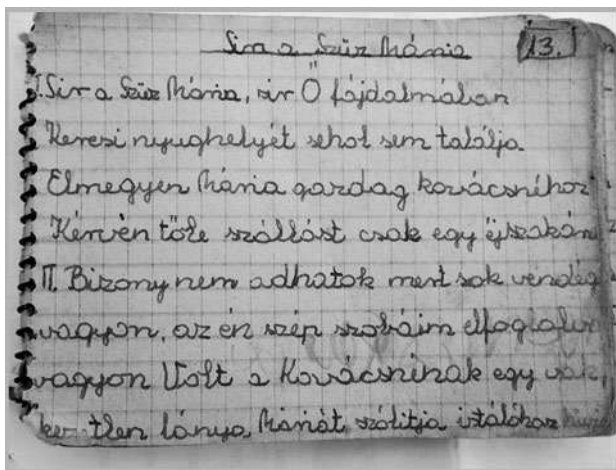 Sir a Szűz Mária 13.
I. Sir a Szűz Mária, sir Ő fájdalmában
Keresi nyughelyét sehol sem találja.
Elmegyen Mária gazdag kovácsnéhoz
Kérvén tőle szállást csak egy éjszakán
II. Bizony nem adhatok mert sok vendég
vagyon, az én szép szobáim elfoglalva
vagyon Volt a Kovácsninak egy vak
keztlen lánya, Máriát szólitja istálóhaz